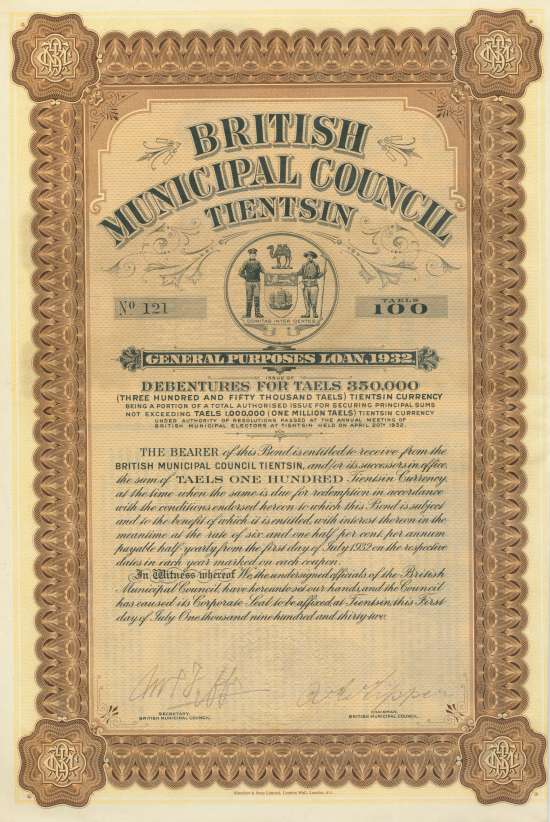 BRITISH
MUNICIPAL COUNCIL
TIENTSIN
COMITAS INTER GENTES
No 121
TAELS
100
GENERAL PURPOSES LOAN, 1932
ISSUE OF
DEBENTURES FOR TAELS 350,000
(THREE HUNDRED AND FIFTY THOUSAND TAELS) TIENTSIN CURRENCY
BEING A PORTION OF A TOTAL AUTHORISED ISSUE FOR SECURING PRINCIPAL SUMS
NOT EXCEEDING TAELS 1,000,000 (ONE MILLION TAELS) TIENTSIN CURRENCY
UNDER AUTHORITY OF RESOLUTIONS PASSED AT THE ANNUAL MEETING OF
BRITISH MUNICIPAL ELECTORS AT TIENTSIN HELD ON APRIL 20TH 1932.
THE BEARER of this Bond is entitled to receive from the
BRITISH MUNICIPAL COUNCIL TIENTSIN, and/or its successors in office,
the sum of TAELS ONE HUNDRED Tientsin Currency,
at the time when the same is due for redemption in accordance
with the conditions endorsed hereon to which this Bond is subject
and to the benefit of which it is entitled, with interest thereon in the
meantime at the rate of six and one half per cent. per annum
payable half-yearly from the first day of July 1932 on the respective
dates in each year marked on each coupon.
In Witness whereof We, the undersigned officials of the British
Municipal Council, have hereunto set our hands, and the Council
has caused its Corporate Seal to be affixed at Tientsin, this First
day of July One thousand nine hundred and thirty two.
SECRETARY,
BRITISH MUNICIPAL COUNCIL
CHAIRMAN,
BRITISH MUNICIPAL COUNCIL
London Wall, London,